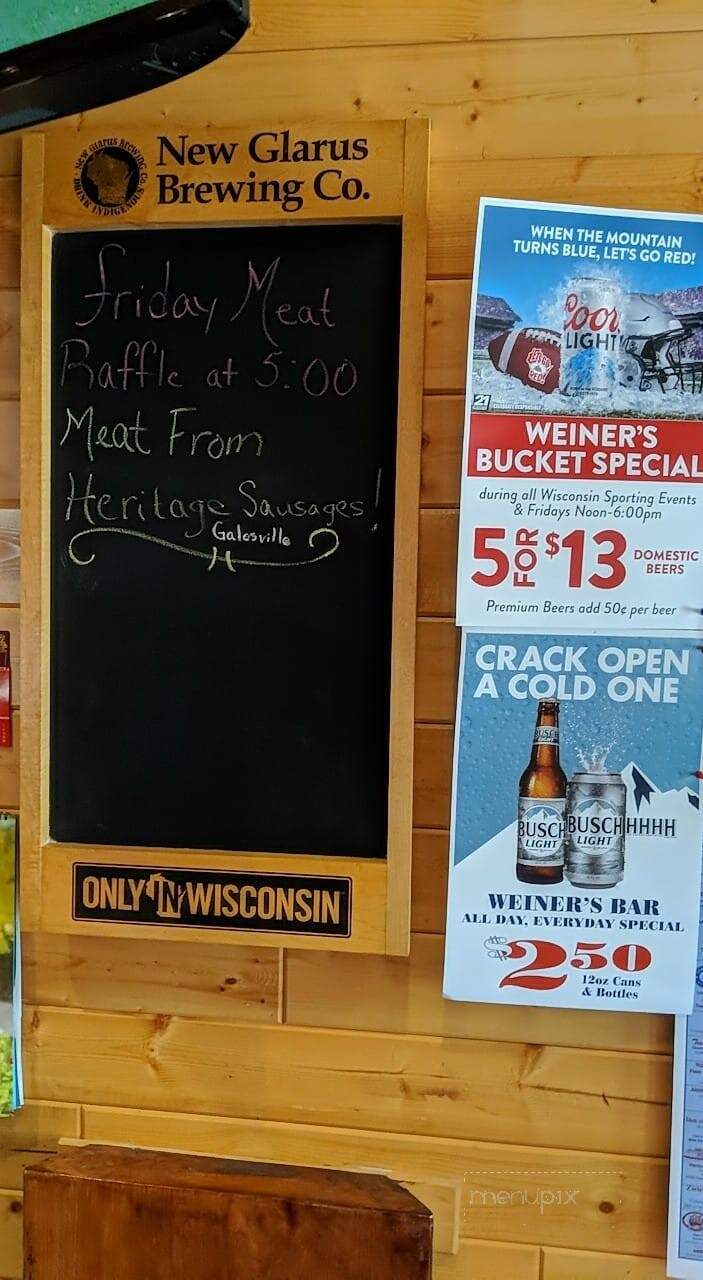 New Glarus
Brewing Co.
NEW GLARUS BREWING CO.
DRINK INDIGENOUS
Friday Meat
Raffle at 5:00
Meat From
Heritage Sausages!
Galesville
ONLY IN WISCONSIN
WHEN THE MOUNTAIN
TURNS BLUE, LET'S GO RED!
Coors
LIGHT
21
WEINER'S
BUCKET SPECIAL
during all Wisconsin Sporting Events
& Fridays Noon-6:00pm
5 FOR $13 DOMESTIC
BEERS
Premium Beers add 50¢ per beer
CRACK OPEN
A COLD ONE
BUSCH
BUSCH BUSCHHHHH
LIGHT LIGHT
WEINER'S BAR
ALL DAY, EVERYDAY SPECIAL
$250
12oz Cans
& Bottles
menupix